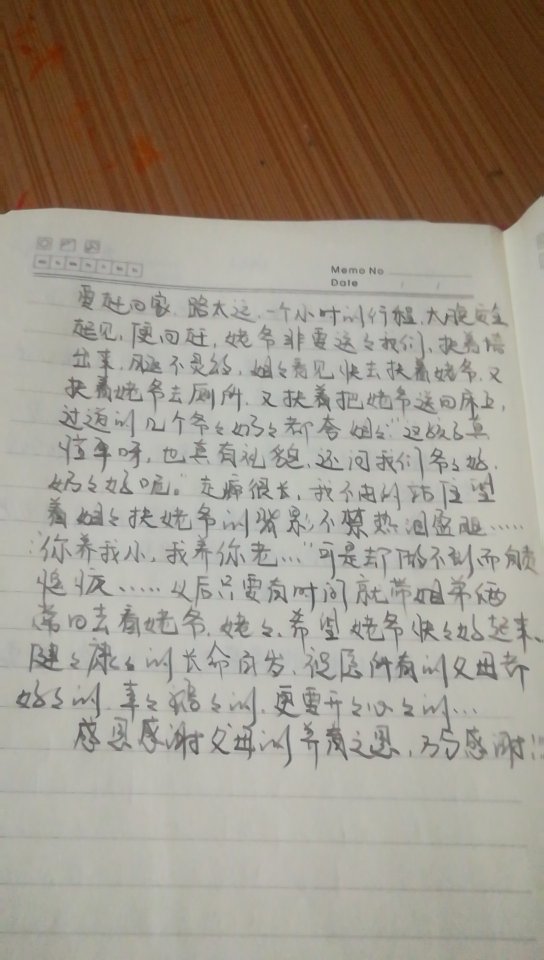 Memo No
Date / /
要赶回家,路太远,一个小时的行程,大晚安全
起见,便回赶,姥爷非要送々我们,扶着墙
出来,腿不灵的,姐々看见快去扶着姥爷,又
扶着姥爷去厕所,又扶着把姥爷送回床上,
过道的几个爷々奶々都夸姐々"这孩子真
懂事呀,也真有礼貌,还问我们爷々好,
奶々好呢。"走廊很长,我不由的站住望
着姐々扶姥爷的背影,不禁热泪盈眶……
"你养我小,我养你老…"可是却做不到而自责
愧疚……以后只要有时间就带姐弟俩
常回去看姥爷、姥々,希望姥爷快々好起来、
健々康々的长命百岁,祝愿所有的父母都
好好的,幸々福々的,更要开々心々的…
感恩感谢父母的养育之恩,万分感谢!